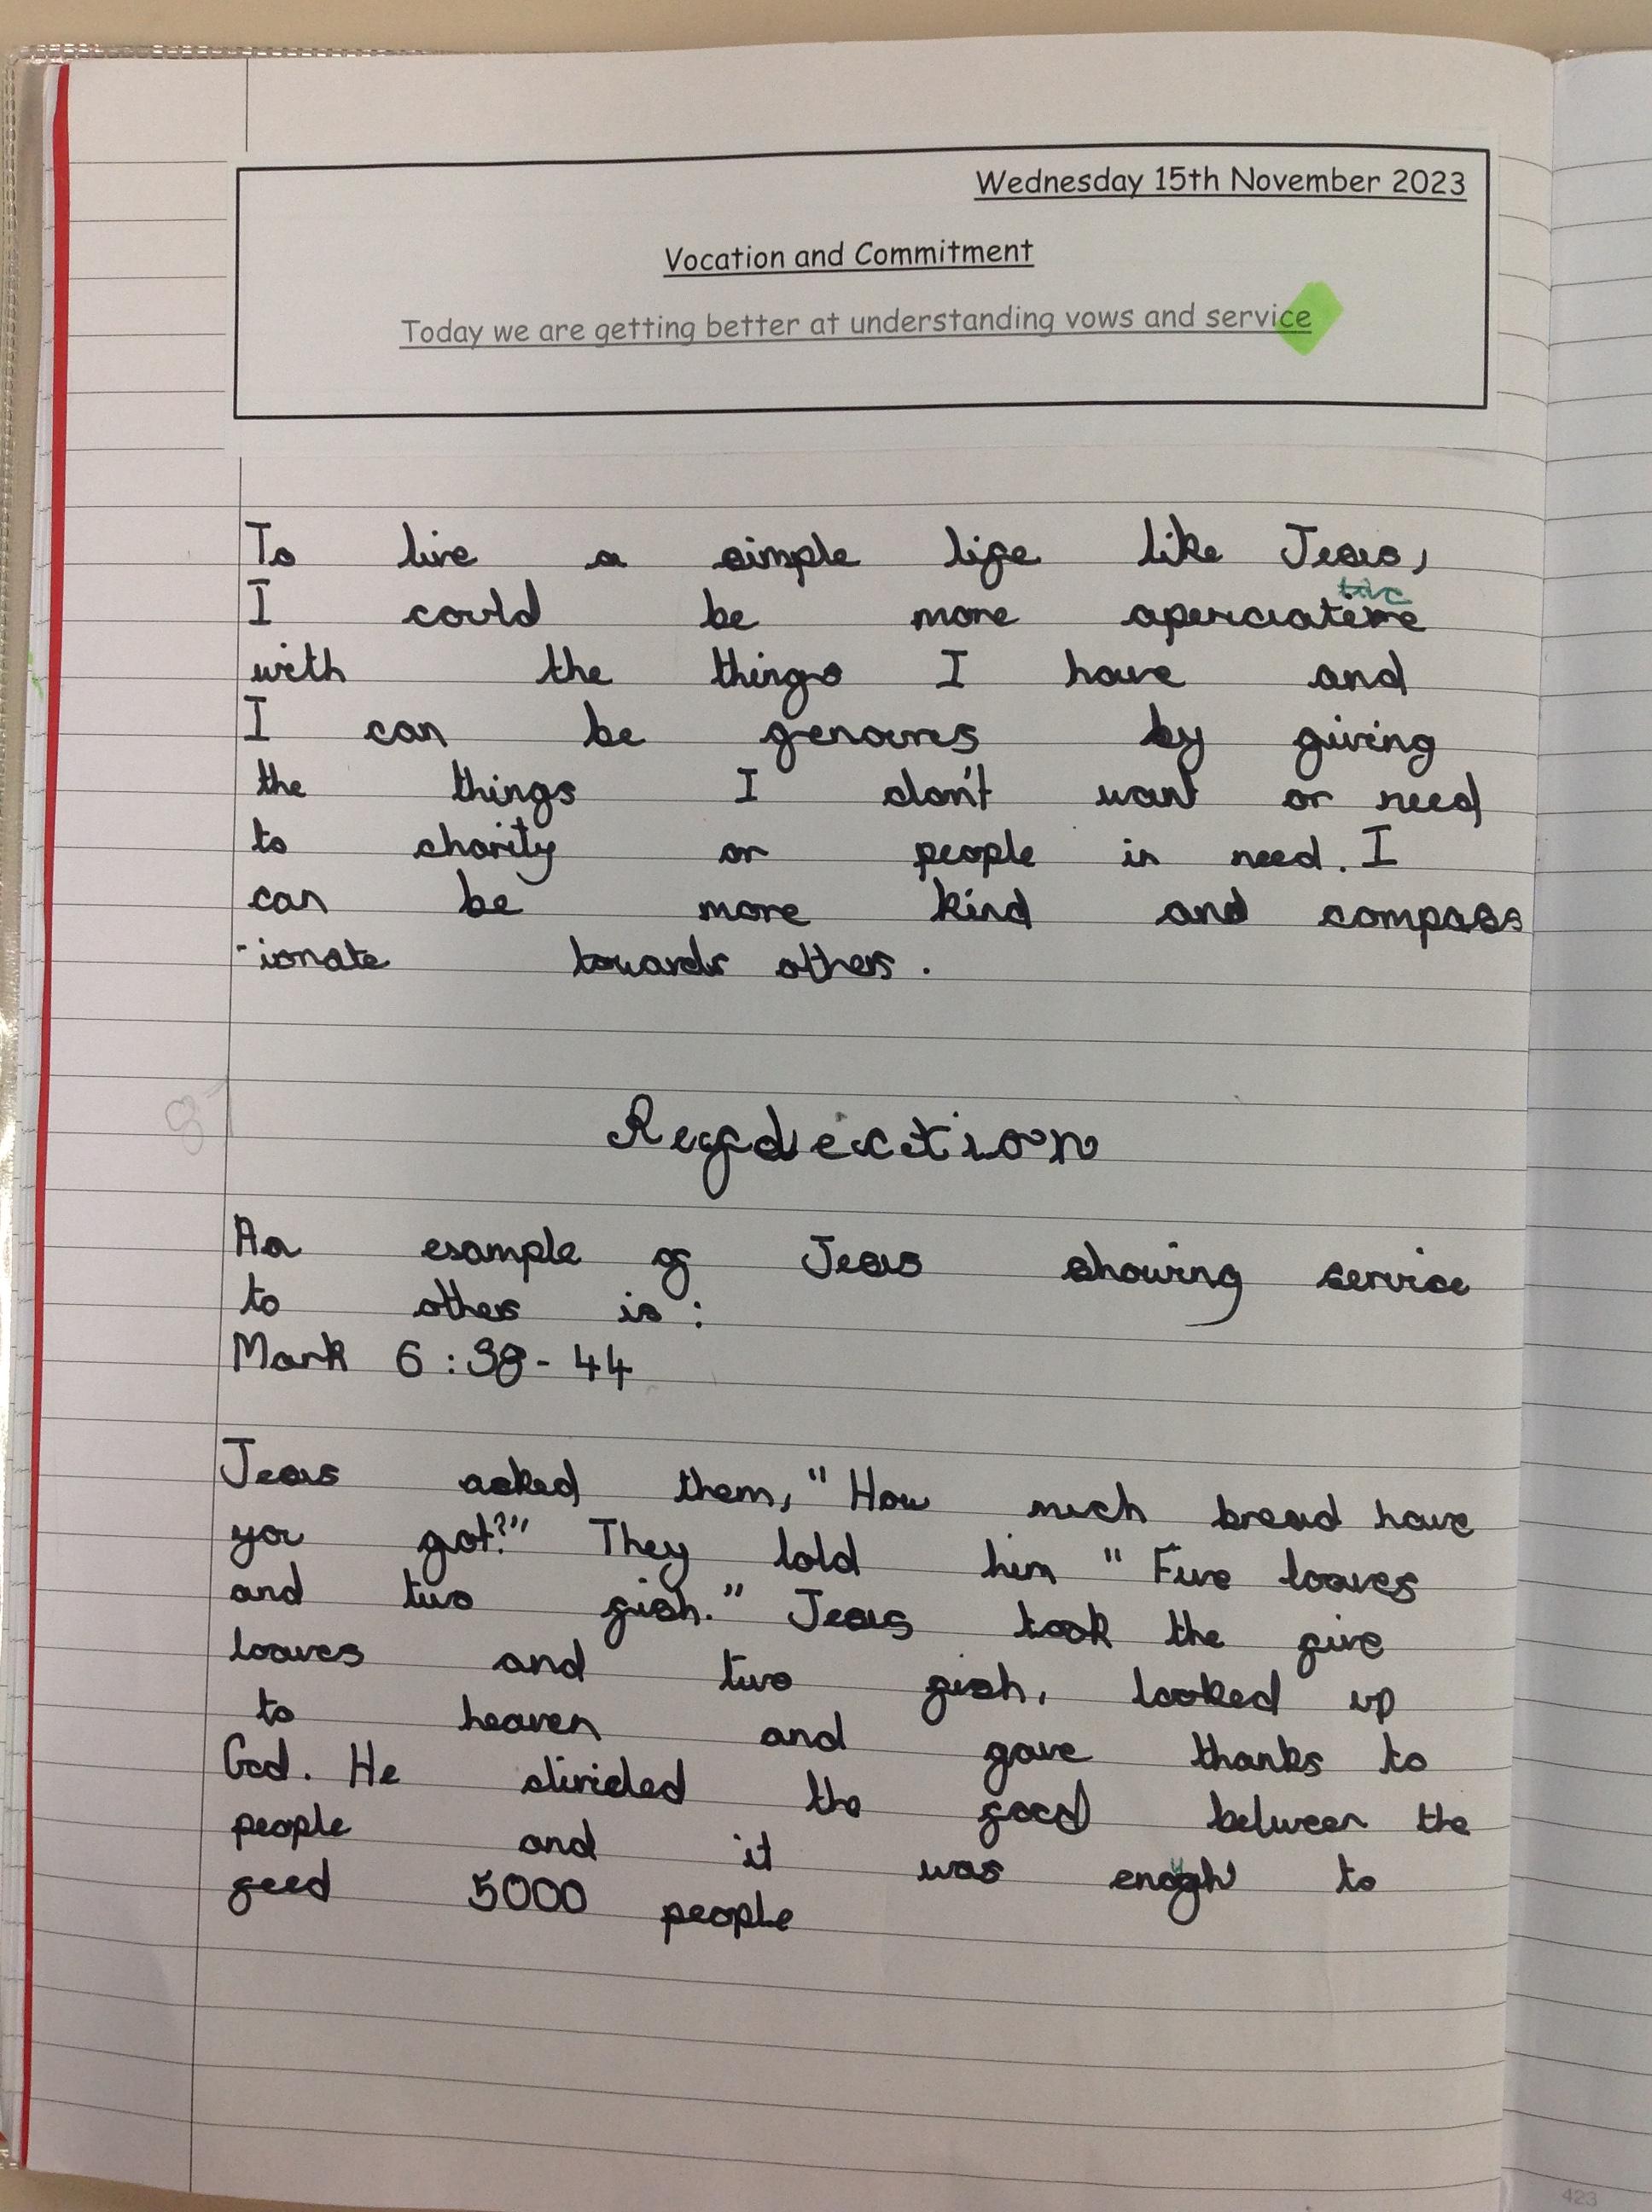 Wednesday 15th November 2023
Vocation and Commitment
Today we are getting better at understanding vows and service
To live a simple life like Jesus,
tive
I could be more aperciateve
with the things I have and
I can be genoures by giving
the things I don't want or need
to charity or people in need. I
can be more kind and compass
-ionate towards others.
An esample of Jesus showing service
to others is:
Mark 6:38-44
Jesus asked them, "How much bread have
you got?" They told him "Five loaves
and two fish." Jesus took the five
loaves and two fish, looked up
to heaven and gave thanks to
God. He divided the food between the
people and it was enough to
feed 5000 people
423